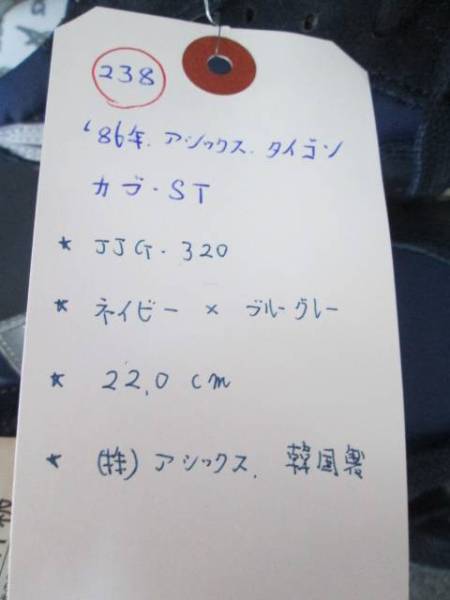 238
'86年. アシックス. タイゴン
カブ・ST
★ JJG. 320
★ ネイビー × ブルーグレー
★ 22.0 cm
★ (株) アシックス. 韓国製